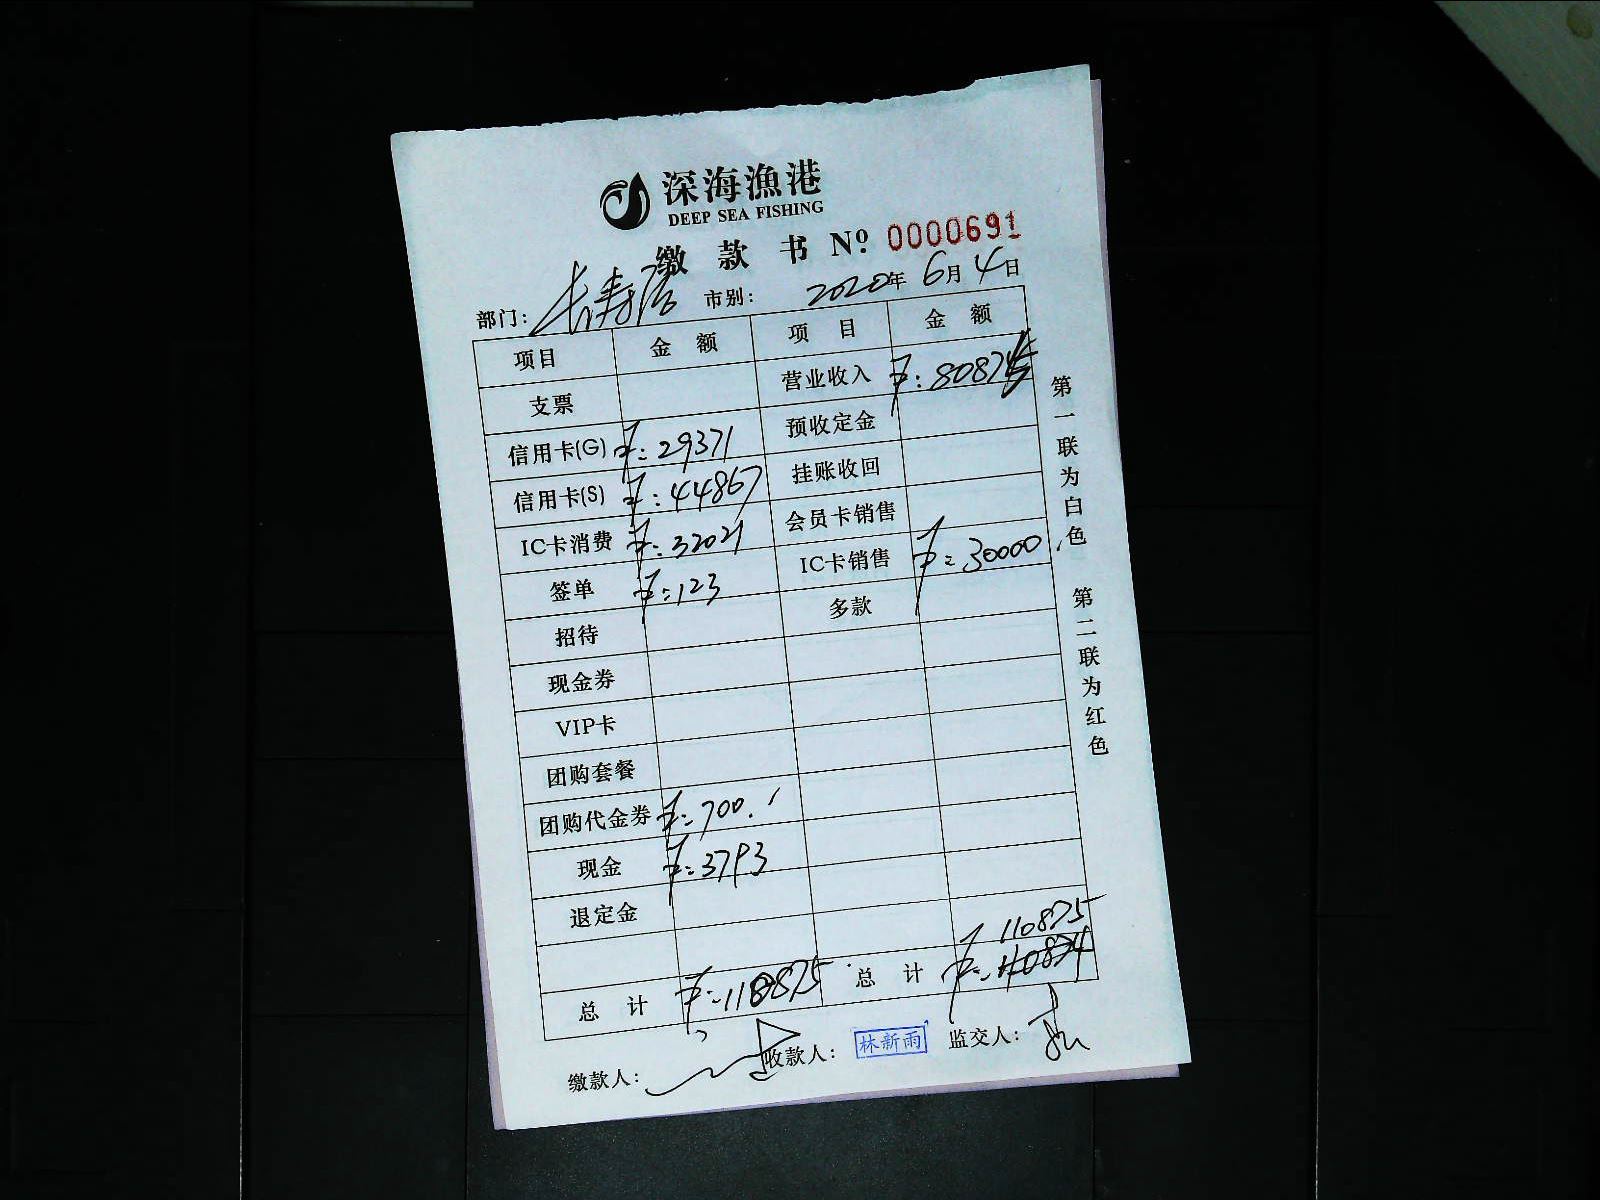 深海漁港
DEEP SEA FISHING
缴款书 Nº 0000691
部门: 长寿店 市别: 2020年6月4日
项目 金额 项目 金额
支票 营业收入 ¥:80875
信用卡(G) ¥:29371 预收定金
信用卡(S) ¥:44867 挂账收回
IC卡消费 ¥:32021 会员卡销售
签单 ¥:123 IC卡销售 ¥:30000
招待 多款
现金券
VIP卡
团购套餐
团购代金券 ¥:700.
现金 ¥:3793
退定金
110875
总计 ¥:110875 总计 ¥:110874
缴款人: 收款人: 林新雨 监交人:
第一联为白色 第二联为红色